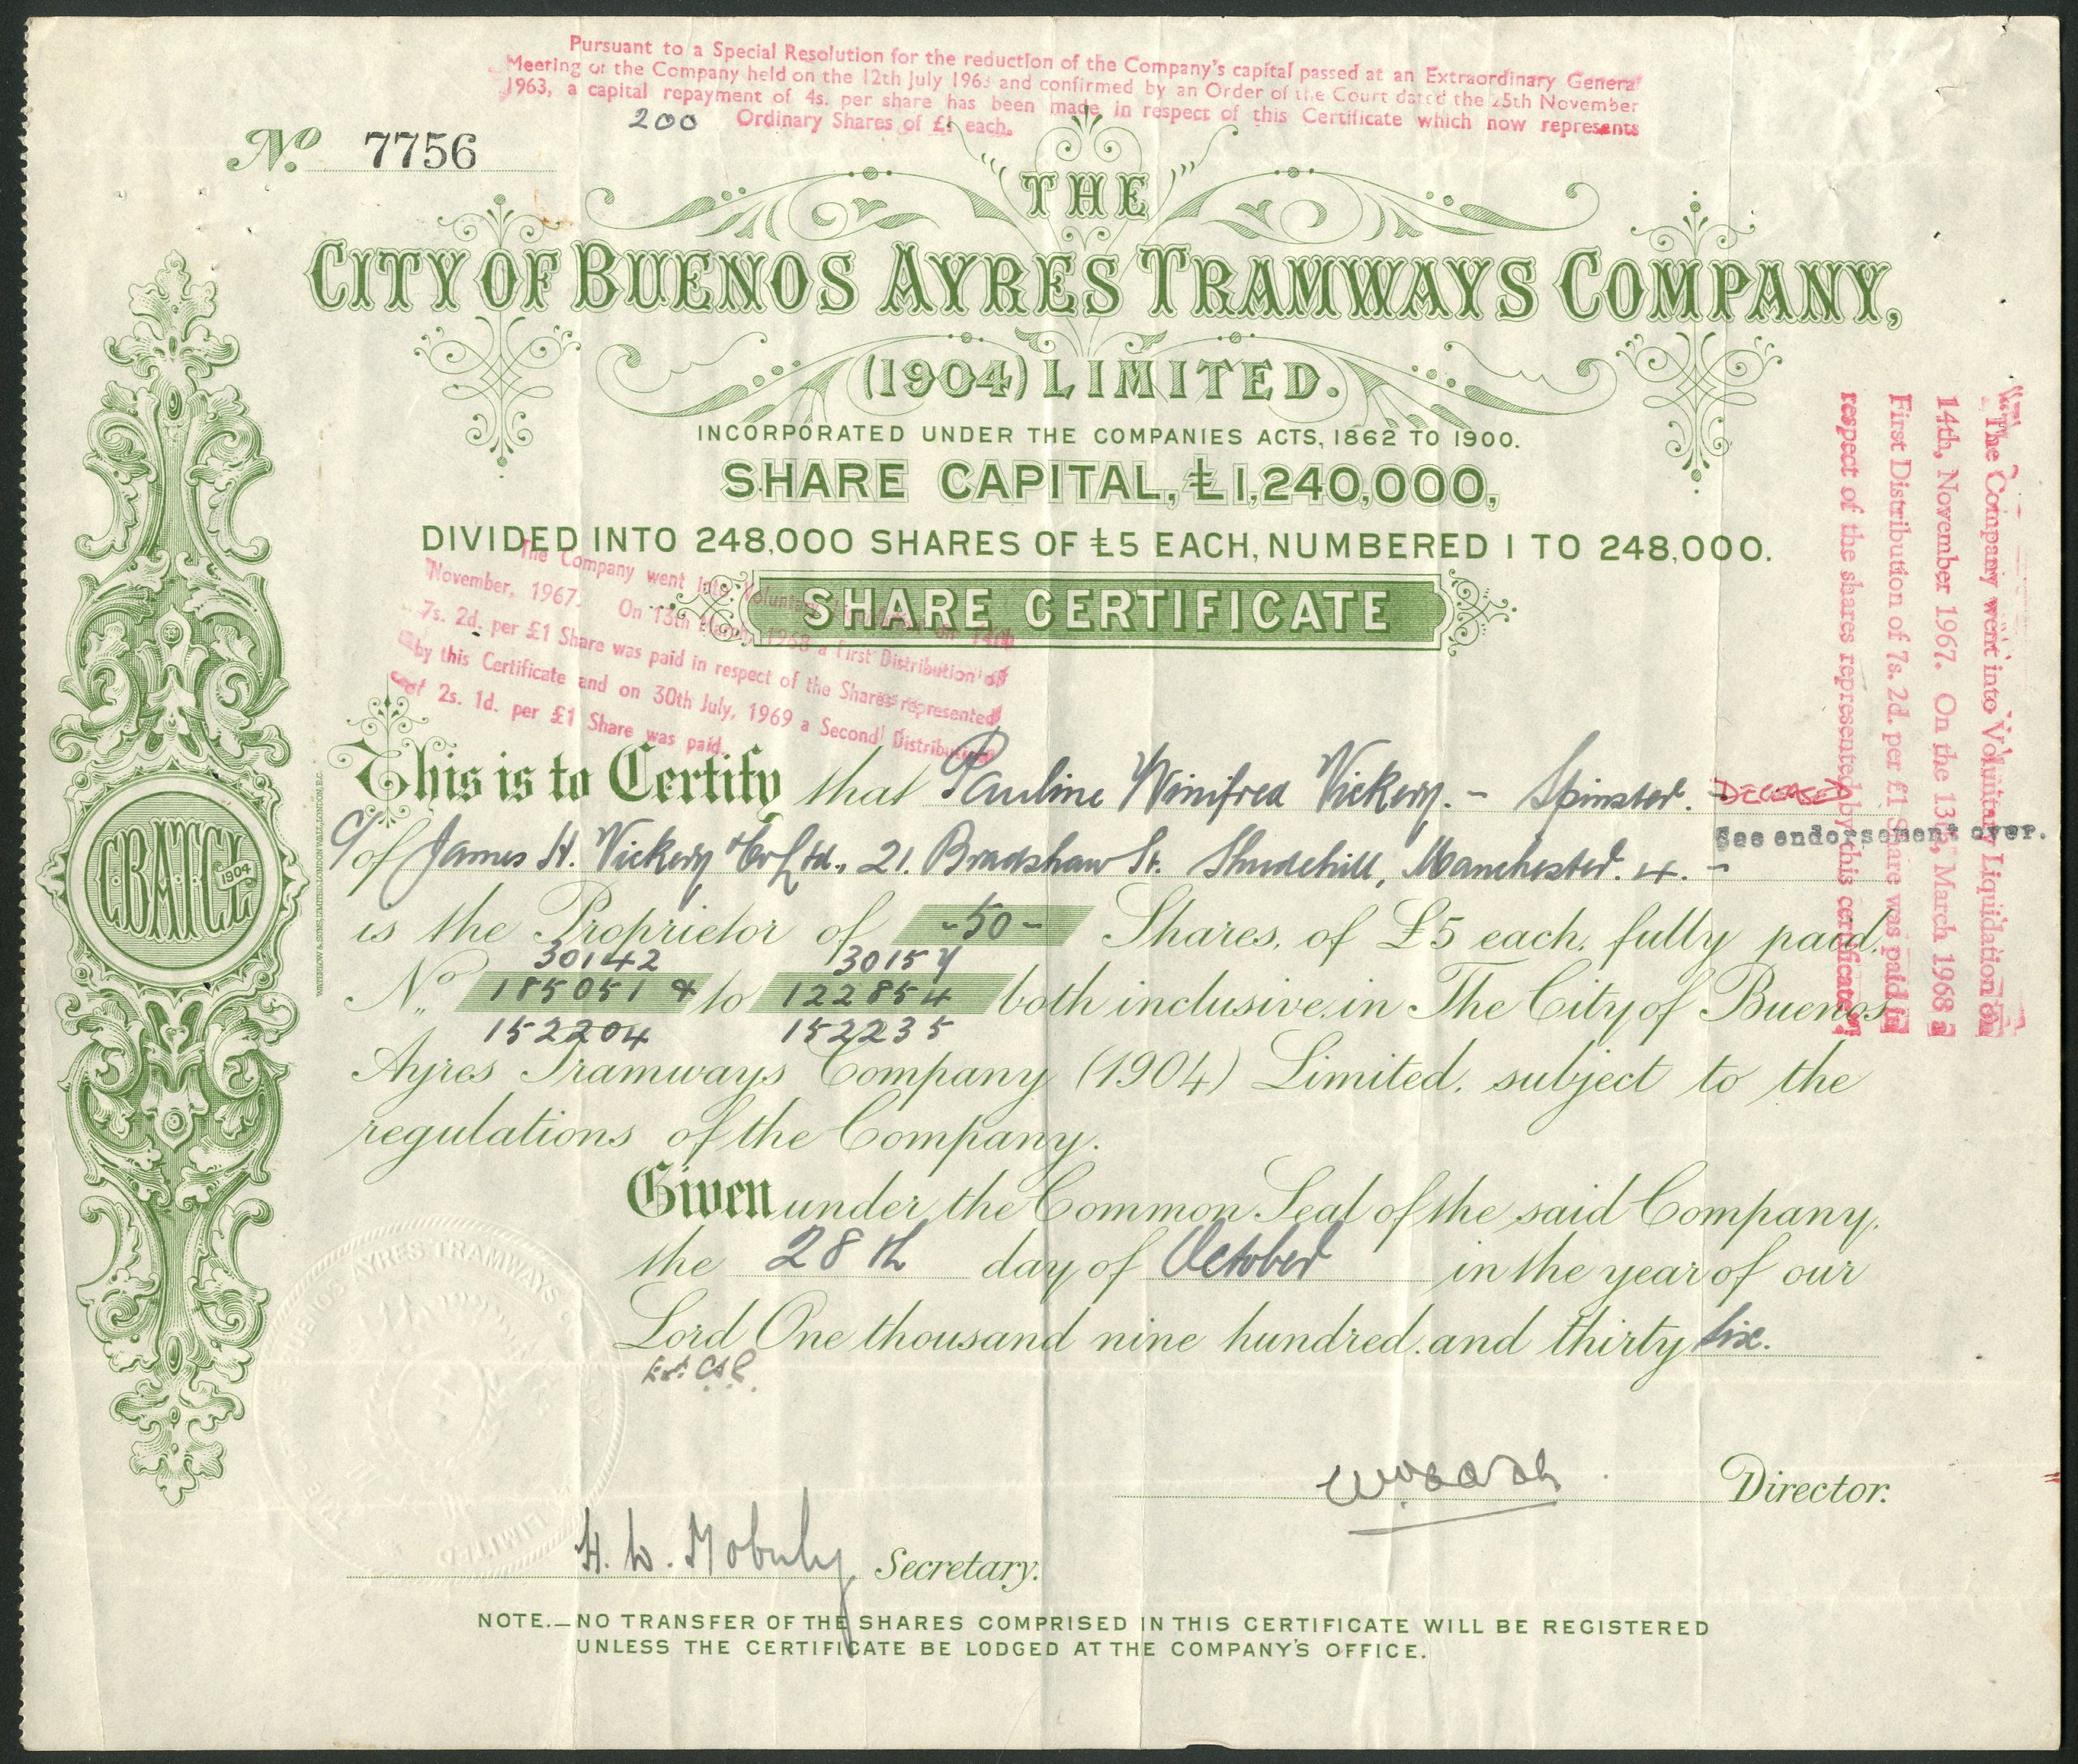 Pursuant to a Special Resolution for the reduction of the Company's capital passed at an Extraordinary General
Meeting of the Company held on the 12th July 1963 and confirmed by an Order of the Court dated the 25th November
1963, a capital repayment of 4s. per share has been made in respect of this Certificate which now represents
200 Ordinary Shares of £1 each.
No. 7756
THE
CITY OF BUENOS AYRES TRAMWAYS COMPANY,
(1904) LIMITED.
INCORPORATED UNDER THE COMPANIES ACTS, 1862 TO 1900.
SHARE CAPITAL, £1,240,000,
DIVIDED INTO 248,000 SHARES OF £5 EACH, NUMBERED 1 TO 248,000.
SHARE CERTIFICATE
The Company went into Voluntary Liquidation on 14th
November, 1967. On 13th March, 1968 a First Distribution of
7s. 2d. per £1 Share was paid in respect of the Shares represented
by this Certificate and on 30th July, 1969 a Second Distribution
of 2s. 1d. per £1 Share was paid.
The Company went into Voluntary Liquidation on
14th, November 1967. On the 13th, March 1968 a
First Distribution of 7s. 2d. per £1 Share was paid in
respect of the shares represented by this certificate.
This is to Certify that Pauline Winifred Vickery. - Spinster. DECEASED
See endorsement over.
c/ of James H. Vickery & Co Ltd., 21. Bradshaw St. Shudehill, Manchester. 4. -
is the Proprietor of -50- Shares, of £5 each, fully paid,
30142 30157
No. 185051 & to 122854 both inclusive, in The City of Buenos
152204 152235
Ayres Tramways Company (1904) Limited, subject to the
regulations of the Company.
Given under the Common Seal of the said Company,
the 28th day of October in the year of our
Lord One thousand nine hundred and thirty six.
Director.
H. W. Secretary.
NOTE.—NO TRANSFER OF THE SHARES COMPRISED IN THIS CERTIFICATE WILL BE REGISTERED
UNLESS THE CERTIFICATE BE LODGED AT THE COMPANY'S OFFICE.
CBATCL
1904
WATERLOW & SONS, LIMITED, LONDON WALL, LONDON, E.C.
BUENOS AYRES TRAMWAYS
LIMITED